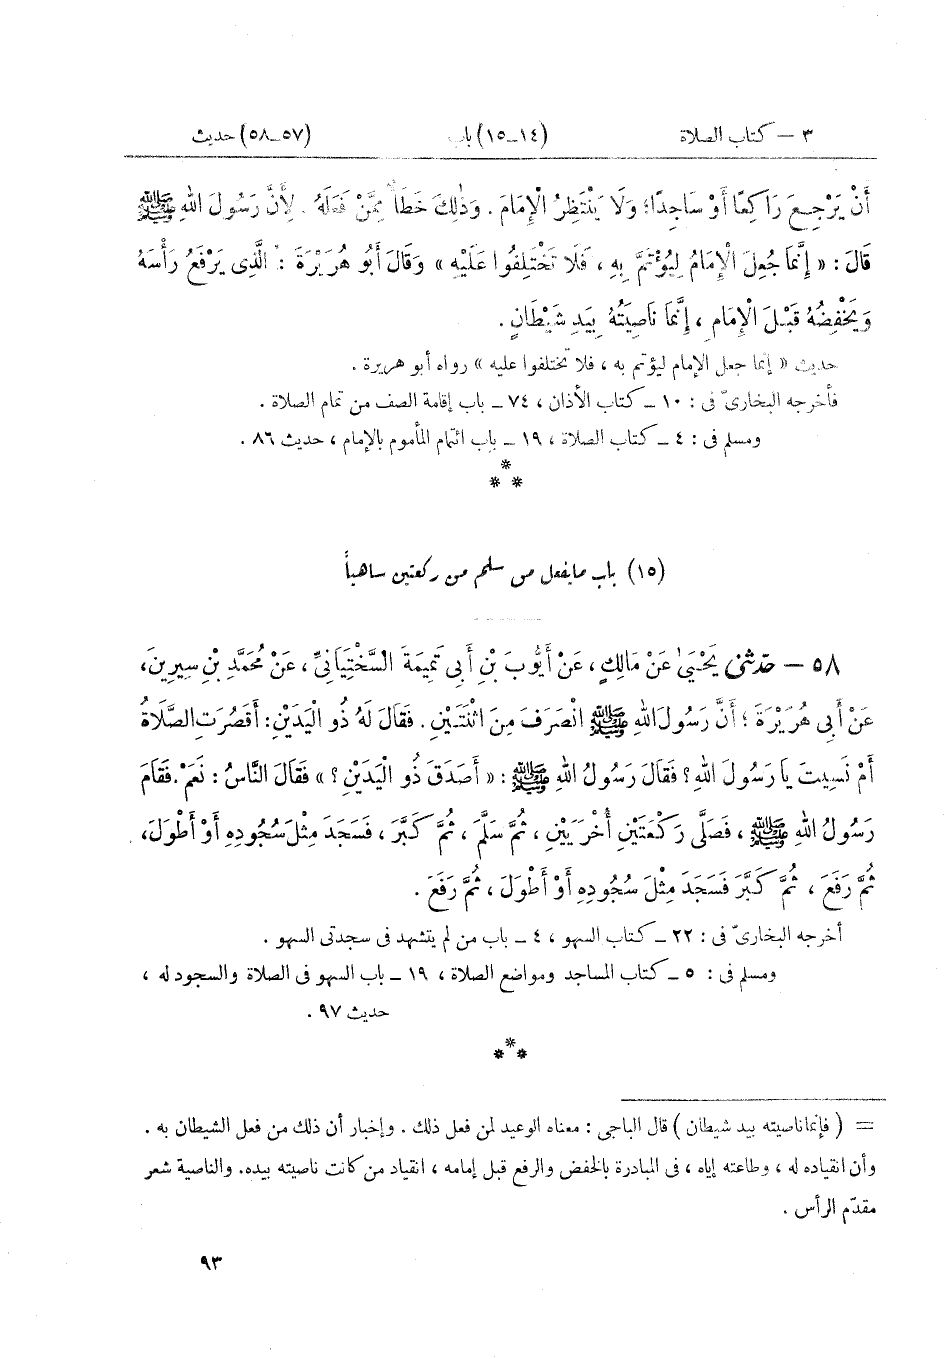 ٣ – كتاب الصلاة (١٤ـ١٥) باب (٥٧ـ٥٨) حديث
أَنْ يَرْجِعَ رَاكِعًا أَوْ سَاجِدًا؛ وَلَا يَنْتَظِرُ الْإِمَامَ . وَذٰلِكَ خَطَأٌ مِمَّنْ فَعَلَهُ . لِأَنَّ رَسُولَ اللهِ ﷺ
قَالَ : « إِنَّمَا جُعِلَ الْإِمَامُ لِيُؤْتَمَّ بِهِ ، فَلَا تَخْتَلِفُوا عَلَيْهِ » وَقَالَ أَبُو هُرَيْرَةَ : الَّذِى يَرْفَعُ رَأْسَهُ
وَيَخْفِضُهُ قَبْلَ الْإِمَامِ ، إِنَّمَا نَاصِيَتُهُ بِيَدِ شَيْطَانٍ .
حديث « إنما جعل الإمام ليؤتم به ، فلا تختلفوا عليه » رواه أبو هريرة .
فأخرجه البخارىّ فى : ١٠ ـ كتاب الأذان ، ٧٤ ـ باب إقامة الصف من تمام الصلاة .
ومسلم فى : ٤ ـ كتاب الصلاة ، ١٩ ـ باب ائتمام المأموم بالإمام ، حديث ٨٦ .
*
* *
(١٥) باب ما يفعل من سلم من ركعتين ساهياً
٥٨ – حَدَّثَنِى يَحْيَىٰ عَنْ مَالِكٍ ، عَنْ أَيُّوبَ بْنِ أَبِى تَمِيمَةَ السَّخْتِيَانِىِّ ، عَنْ مُحَمَّدِ بْنِ سِيرِينَ ،
عَنْ أَبِى هُرَيْرَةَ ؛ أَنَّ رَسُولَ اللهِ ﷺ انْصَرَفَ مِنَ اثْنَتَيْنِ . فَقَالَ لَهُ ذُو الْيَدَيْنِ : أَقَصُرَتِ الصَّلَاةُ
أَمْ نَسِيتَ يَا رَسُولَ اللهِ ؟ فَقَالَ رَسُولُ اللهِ ﷺ : « أَصَدَقَ ذُو الْيَدَيْنِ ؟ » فَقَالَ النَّاسُ : نَعَمْ . فَقَامَ
رَسُولُ اللهِ ﷺ ، فَصَلَّى رَكْعَتَيْنِ أُخْرَيَيْنِ ، ثُمَّ سَلَّمَ ، ثُمَّ كَبَّرَ ، فَسَجَدَ مِثْلَ سُجُودِهِ أَوْ أَطْوَلَ ،
ثُمَّ رَفَعَ ، ثُمَّ كَبَّرَ فَسَجَدَ مِثْلَ سُجُودِهِ أَوْ أَطْوَلَ ، ثُمَّ رَفَعَ .
أخرجه البخارىّ فى : ٢٢ ـ كتاب السهو ، ٤ ـ باب من لم يتشهد فى سجدتى السهو .
ومسلم فى : ٥ ـ كتاب المساجد ومواضع الصلاة ، ١٩ ـ باب السهو فى الصلاة والسجود له ،
حديث ٩٧ .
*
* *
= ( فإنما ناصيته بيد شيطان ) قال الباجى : معناه الوعيد لمن فعل ذلك . وإخبار أن ذلك من فعل الشيطان به .
وأن انقياده له ، وطاعته إياه ، فى المبادرة بالخفض والرفع قبل إمامه ، انقياد من كانت ناصيته بيده. والناصية شعر
مقدّم الرأس .
٩٣